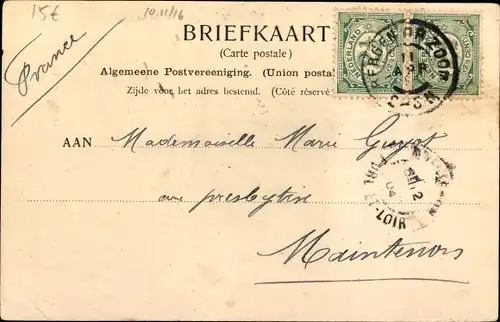 15€
10.11/16
France
BRIEFKAART
(Carte postale)
Algemeene Postvereeniging. (Union posta
Zijde voor het adres bestemd. (Côté réservé
NEDERLAND
BERGEN OP ZOOM
AAN Mademoiselle Marie Guyot
au presbytère
Maintenon